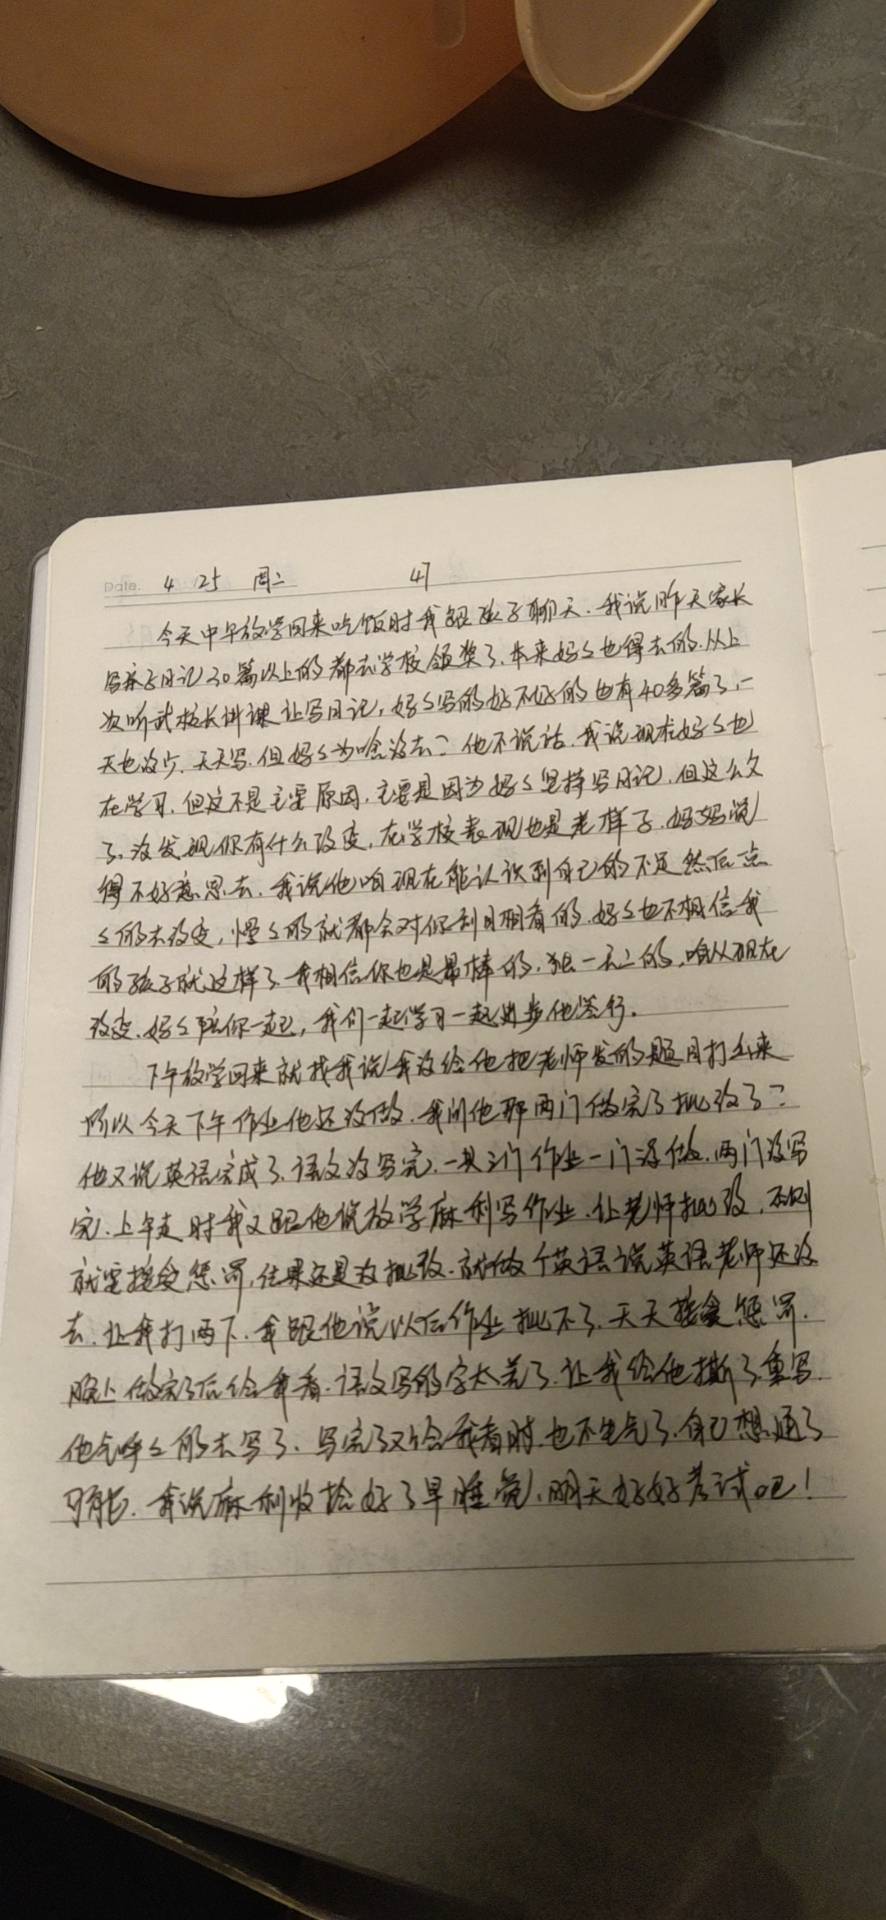 Date. 4 25 周二 47
今天中午放学回来吃饭时我跟孩子聊天.我说昨天家长
写亲子日记30篇以上的都去学校领奖了.本来妈ㄑ也得去的.从上
次听武校长讲课让写日记,妈ㄑ写的好不好的也有40多篇了,一
天也没少.天天写.但妈ㄑ为啥没去?他不说话.我说现在妈ㄑ也
在学习.但这不是主要原因,主要是因为妈ㄑ坚持写日记.但这么久
了.没发现你有什么改变.在学校表现也是老样子.妈妈觉
得不好意思去.我说他咱现在能认识到自己的不足然后点
ㄑ的去改变,慢ㄑ的就都会对你刮目相看的.妈ㄑ也不相信我
的孩子就这样了.我相信你也是最棒的.独一无二的.咱从现在
改变.妈ㄑ陪你一起,我们一起学习一起进步他答行.
下午放学回来就找我说我没给他把老师发的题目打出来
所以今天下午作业他还没做.我问他那两门做完了批改了?
他又说英语完成了.语文没写完.一共三门作业一门没做.两门没写
完.上午走时我又跟他说放学麻利写作业.让老师批改,否则
就要接受惩罚.结果还是没批改.就做个英语说英语老师还没
去.让我打两下.我跟他说以后作业批不了.天天接受惩罚.
晚上做完了后给我看.语文写的字太差了.让我给他撕了重写.
他气呼ㄑ的去写了.写完了又给我看时.也不生气了.自己想通了
可能.我说麻利收拾好了早睡觉.明天好好考试吧!